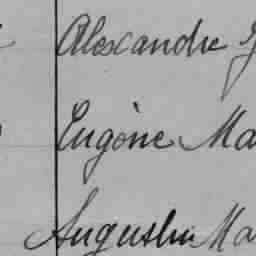 Alexandre
Eugène Ma
Augustin Ma